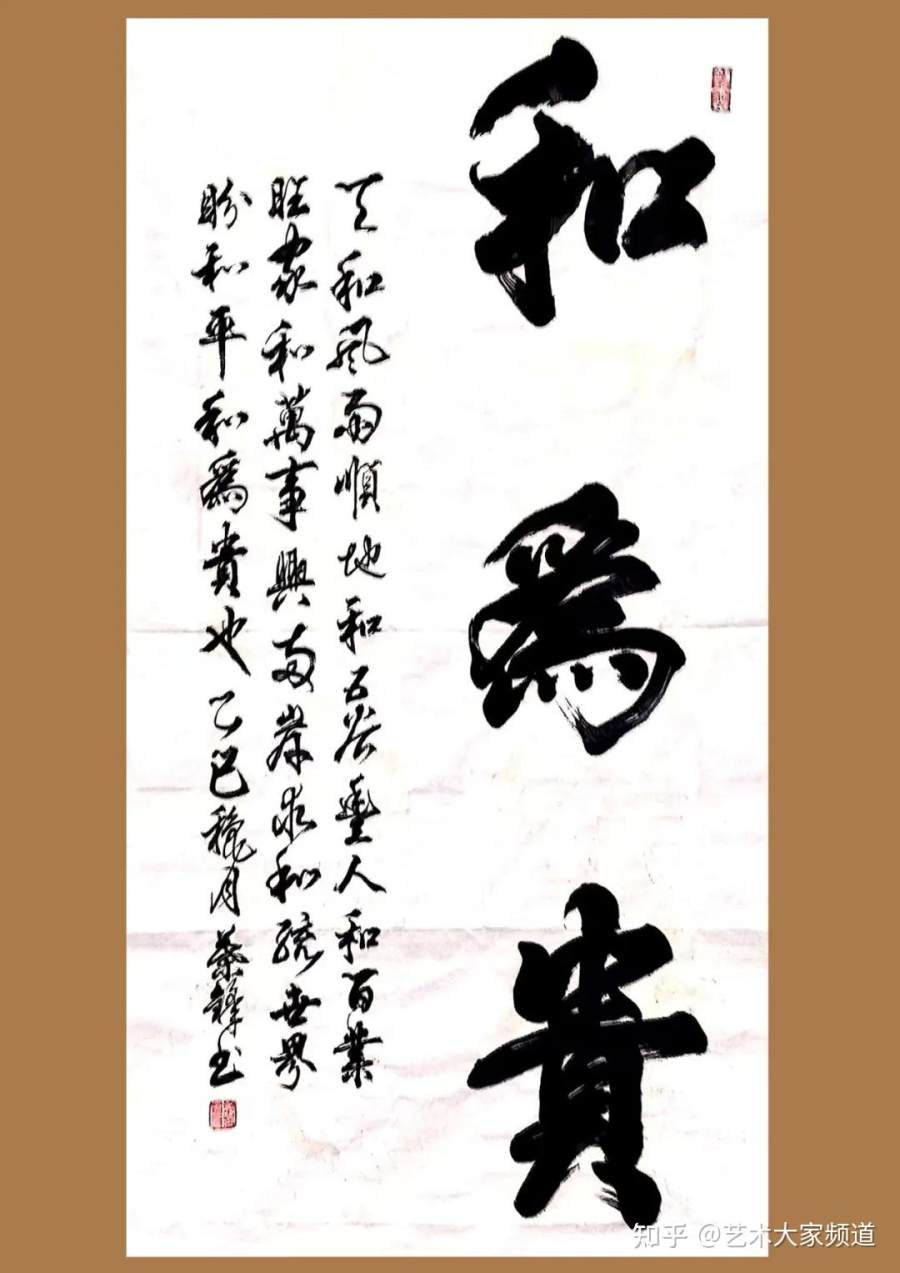 和為貴
天和風雨順地和五谷豐人和百業
旺家和萬事興兩岸求和統世界
盼和平和為貴也乙巳穐月葉輝书
知乎 @艺术大家频道